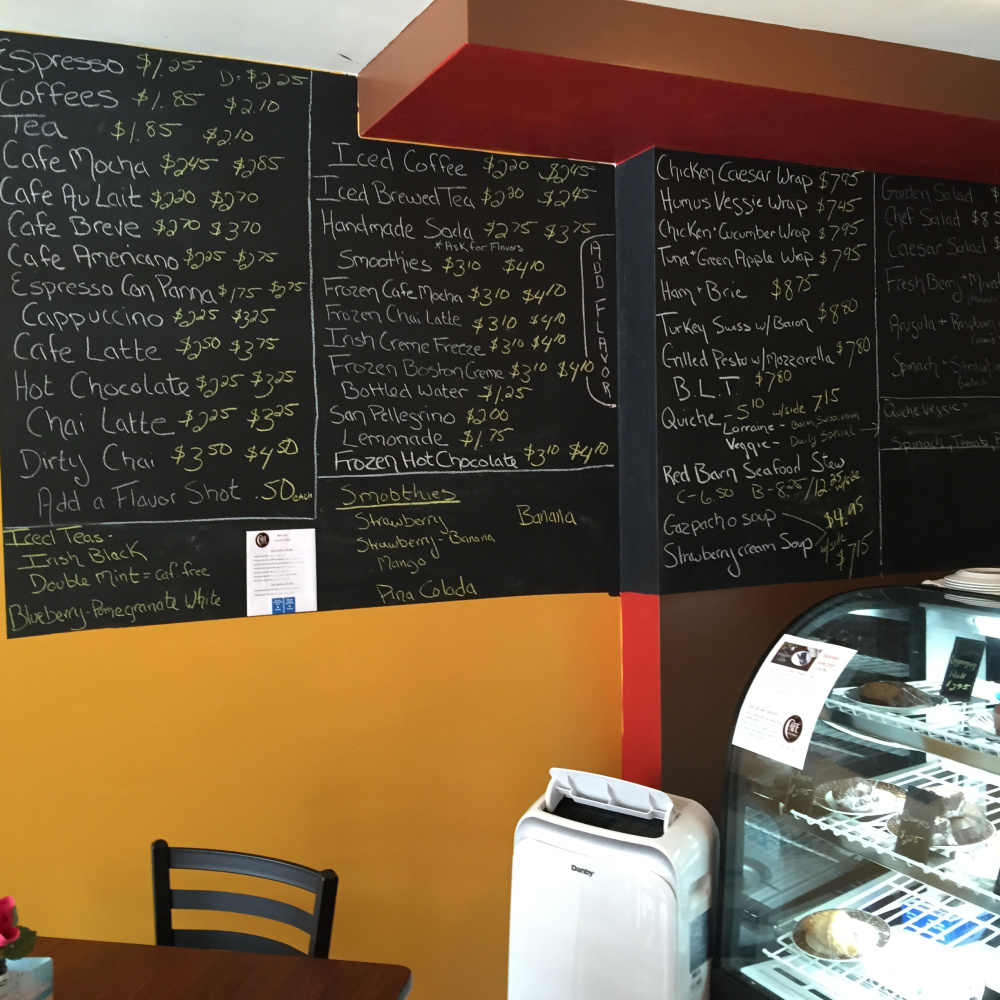 Espresso $1.25 D=$2.25
Coffees $1.85 $2.10
Tea $1.85 $2.10
Cafe Mocha $2.45 $2.85
Cafe Au Lait $2.20 $2.70
Cafe Breve $2.70 $3.70
Cafe Americano $2.25 $2.75
Espresso Con Panna $1.75 $2.75
Cappuccino $2.25 $3.25
Cafe Latte $2.50 $3.75
Hot Chocolate $2.25 $3.25
Chai Latte $2.25 $3.25
Dirty Chai $3.50 $4.50
Add a Flavor Shot .50 each
Iced Teas -
Irish Black
Double Mint = caf. free
Blueberry - Pomegranate White
Iced Coffee $2.20 $2.45
Iced Brewed Tea $2.20 $2.45
Handmade Soda $2.75 $3.75
*Ask for Flavors
Smoothies $3.10 $4.10
Frozen Cafe Mocha $3.10 $4.10
Frozen Chai Latte $3.10 $4.10
Irish Creme Freeze $3.10 $4.10
Frozen Boston Creme $3.10 $4.10
Bottled Water - $1.25
San Pellegrino $2.00
Lemonade $1.75
Frozen Hot Chocolate $3.10 $4.10
ADD FLAVOR
Smoothies
Strawberry Banana
Strawberry - Banana
Mango
Pina Colada
Chicken Caesar Wrap $7.95
Humus Veggie Wrap $7.45
Chicken + Cucumber Wrap $7.95
Tuna + Green Apple Wrap $7.95
Ham + Brie $8.75
Turkey Swiss w/ Bacon $8.80
Grilled Pesto w/ Mozzarella $7.80
B.L.T. $7.80
Quiche - 5.10 w/side 7.15
Lorraine -
Veggie - Daily Special
Red Barn Seafood Stew
C-6.50 B-8.25/12.25/side
Gazpacho soup $4.95
Strawberry cream Soup w/side $7.15
Garden Salad $
Chef Salad $8.5
Caesar Salad $
Fresh Berry + Mixed
Arugula + Raspberry
Spinach + Strawb
Quiche Veggie -
Spinach, Tomato
Danby
$3.95